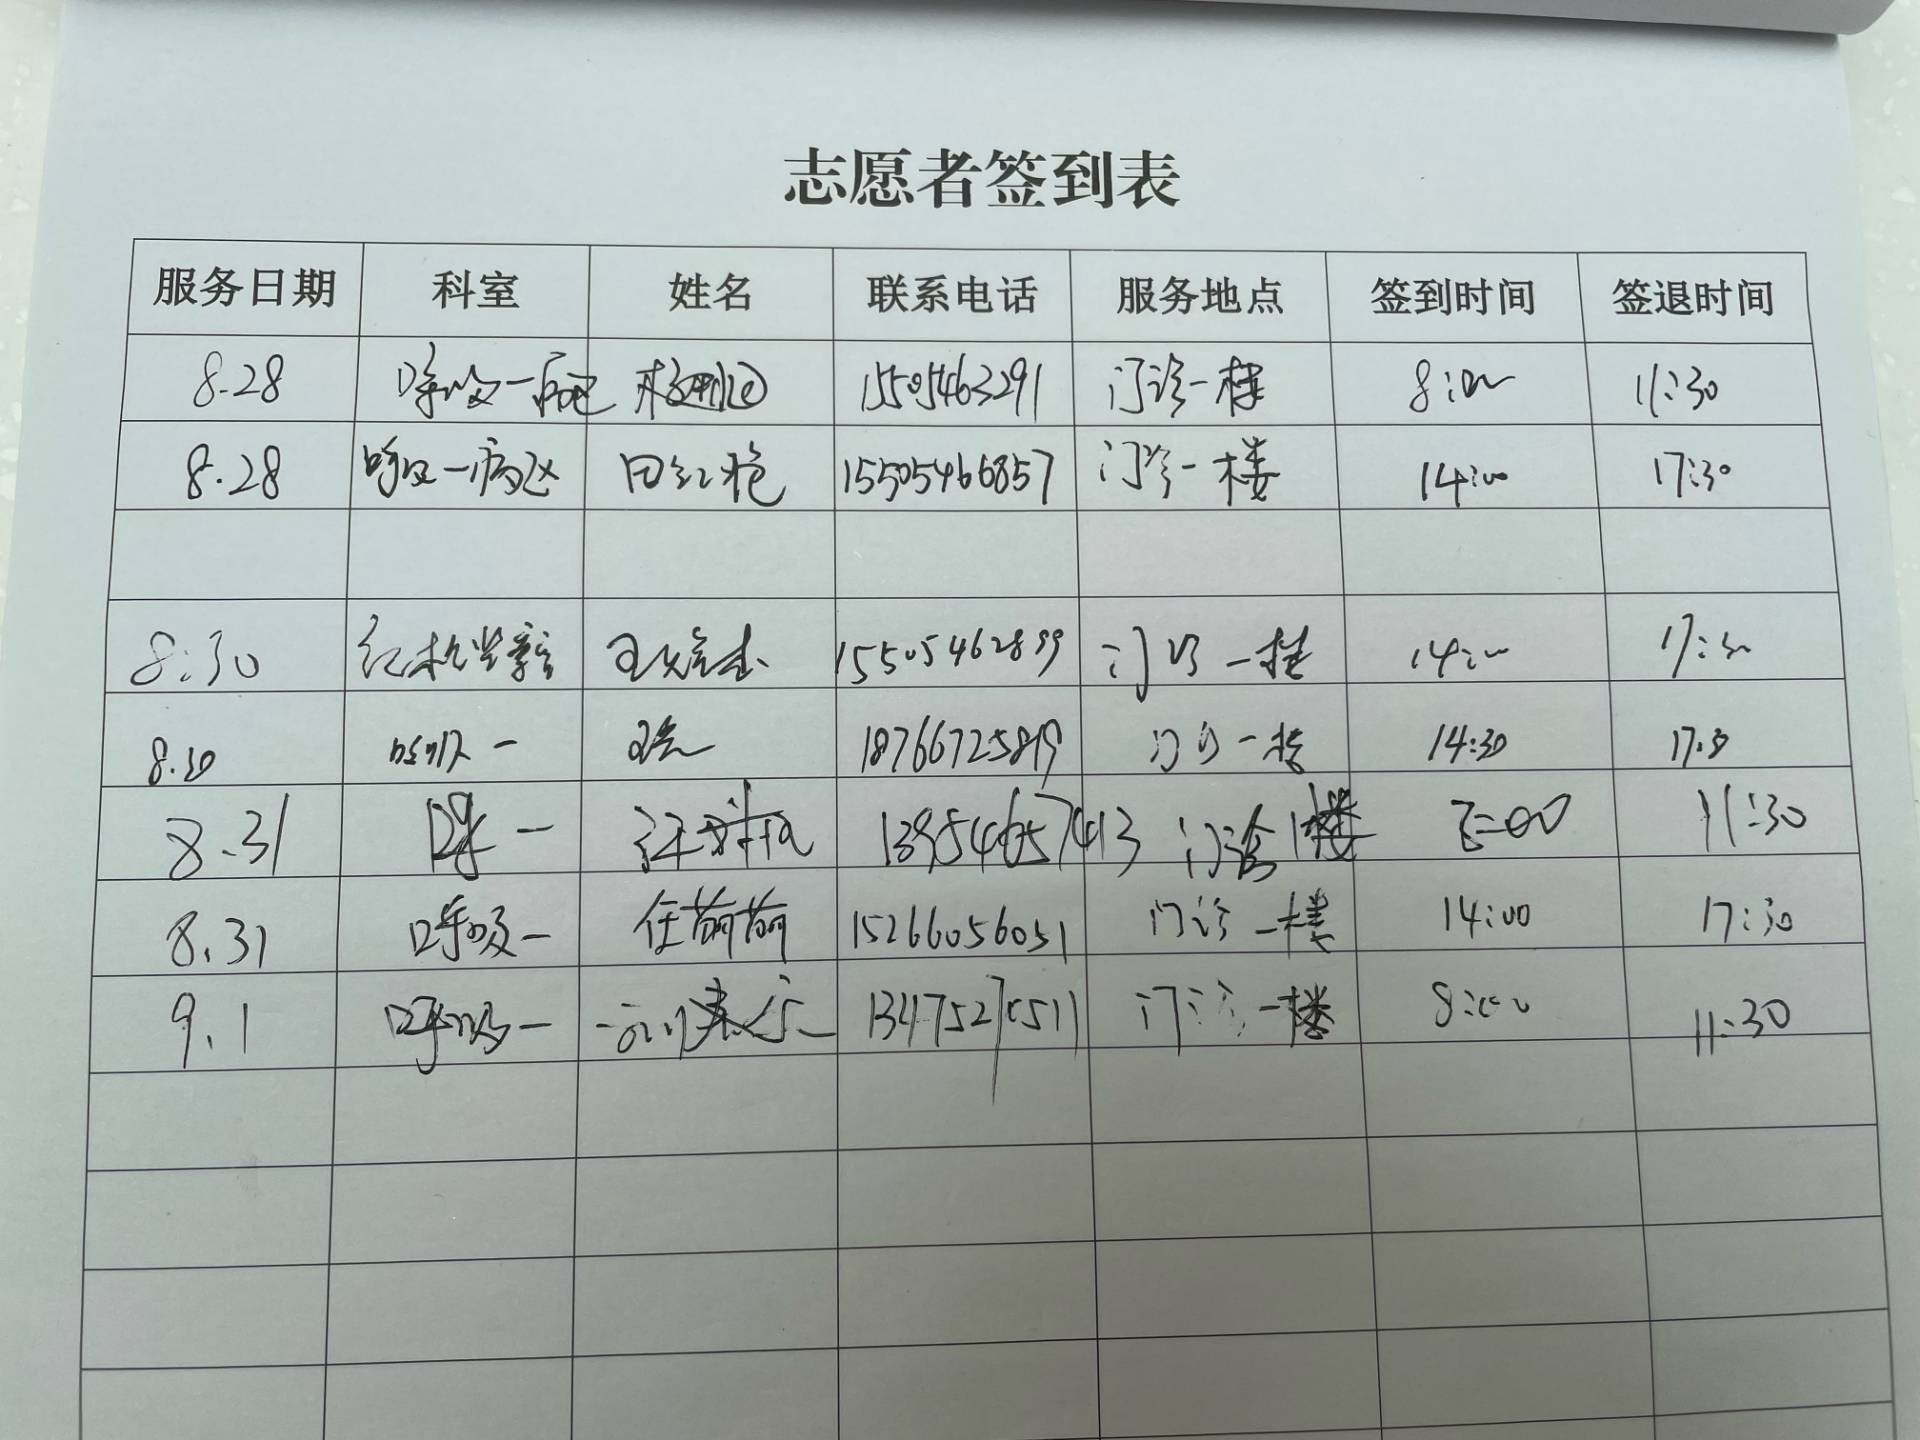 志愿者签到表
服务日期 科室 姓名 联系电话 服务地点 签到时间 签退时间
8.28 呼吸一病区 15505463291 门诊一楼 8:00 11:30
8.28 呼吸一病区 田红艳 15505466857 门诊一楼 14:00 17:30
8:30 15505462899 门诊一楼 14:00 17:30
8.30 呼吸一 18766725819 门诊一楼 14:30 17:30
8.31 呼一 13954657413 门诊1楼 11:30
8.31 呼吸一 任萌萌 15266056051 门诊一楼 14:00 17:30
9.1 呼吸一 13475275511 门诊一楼 8:00 11:30